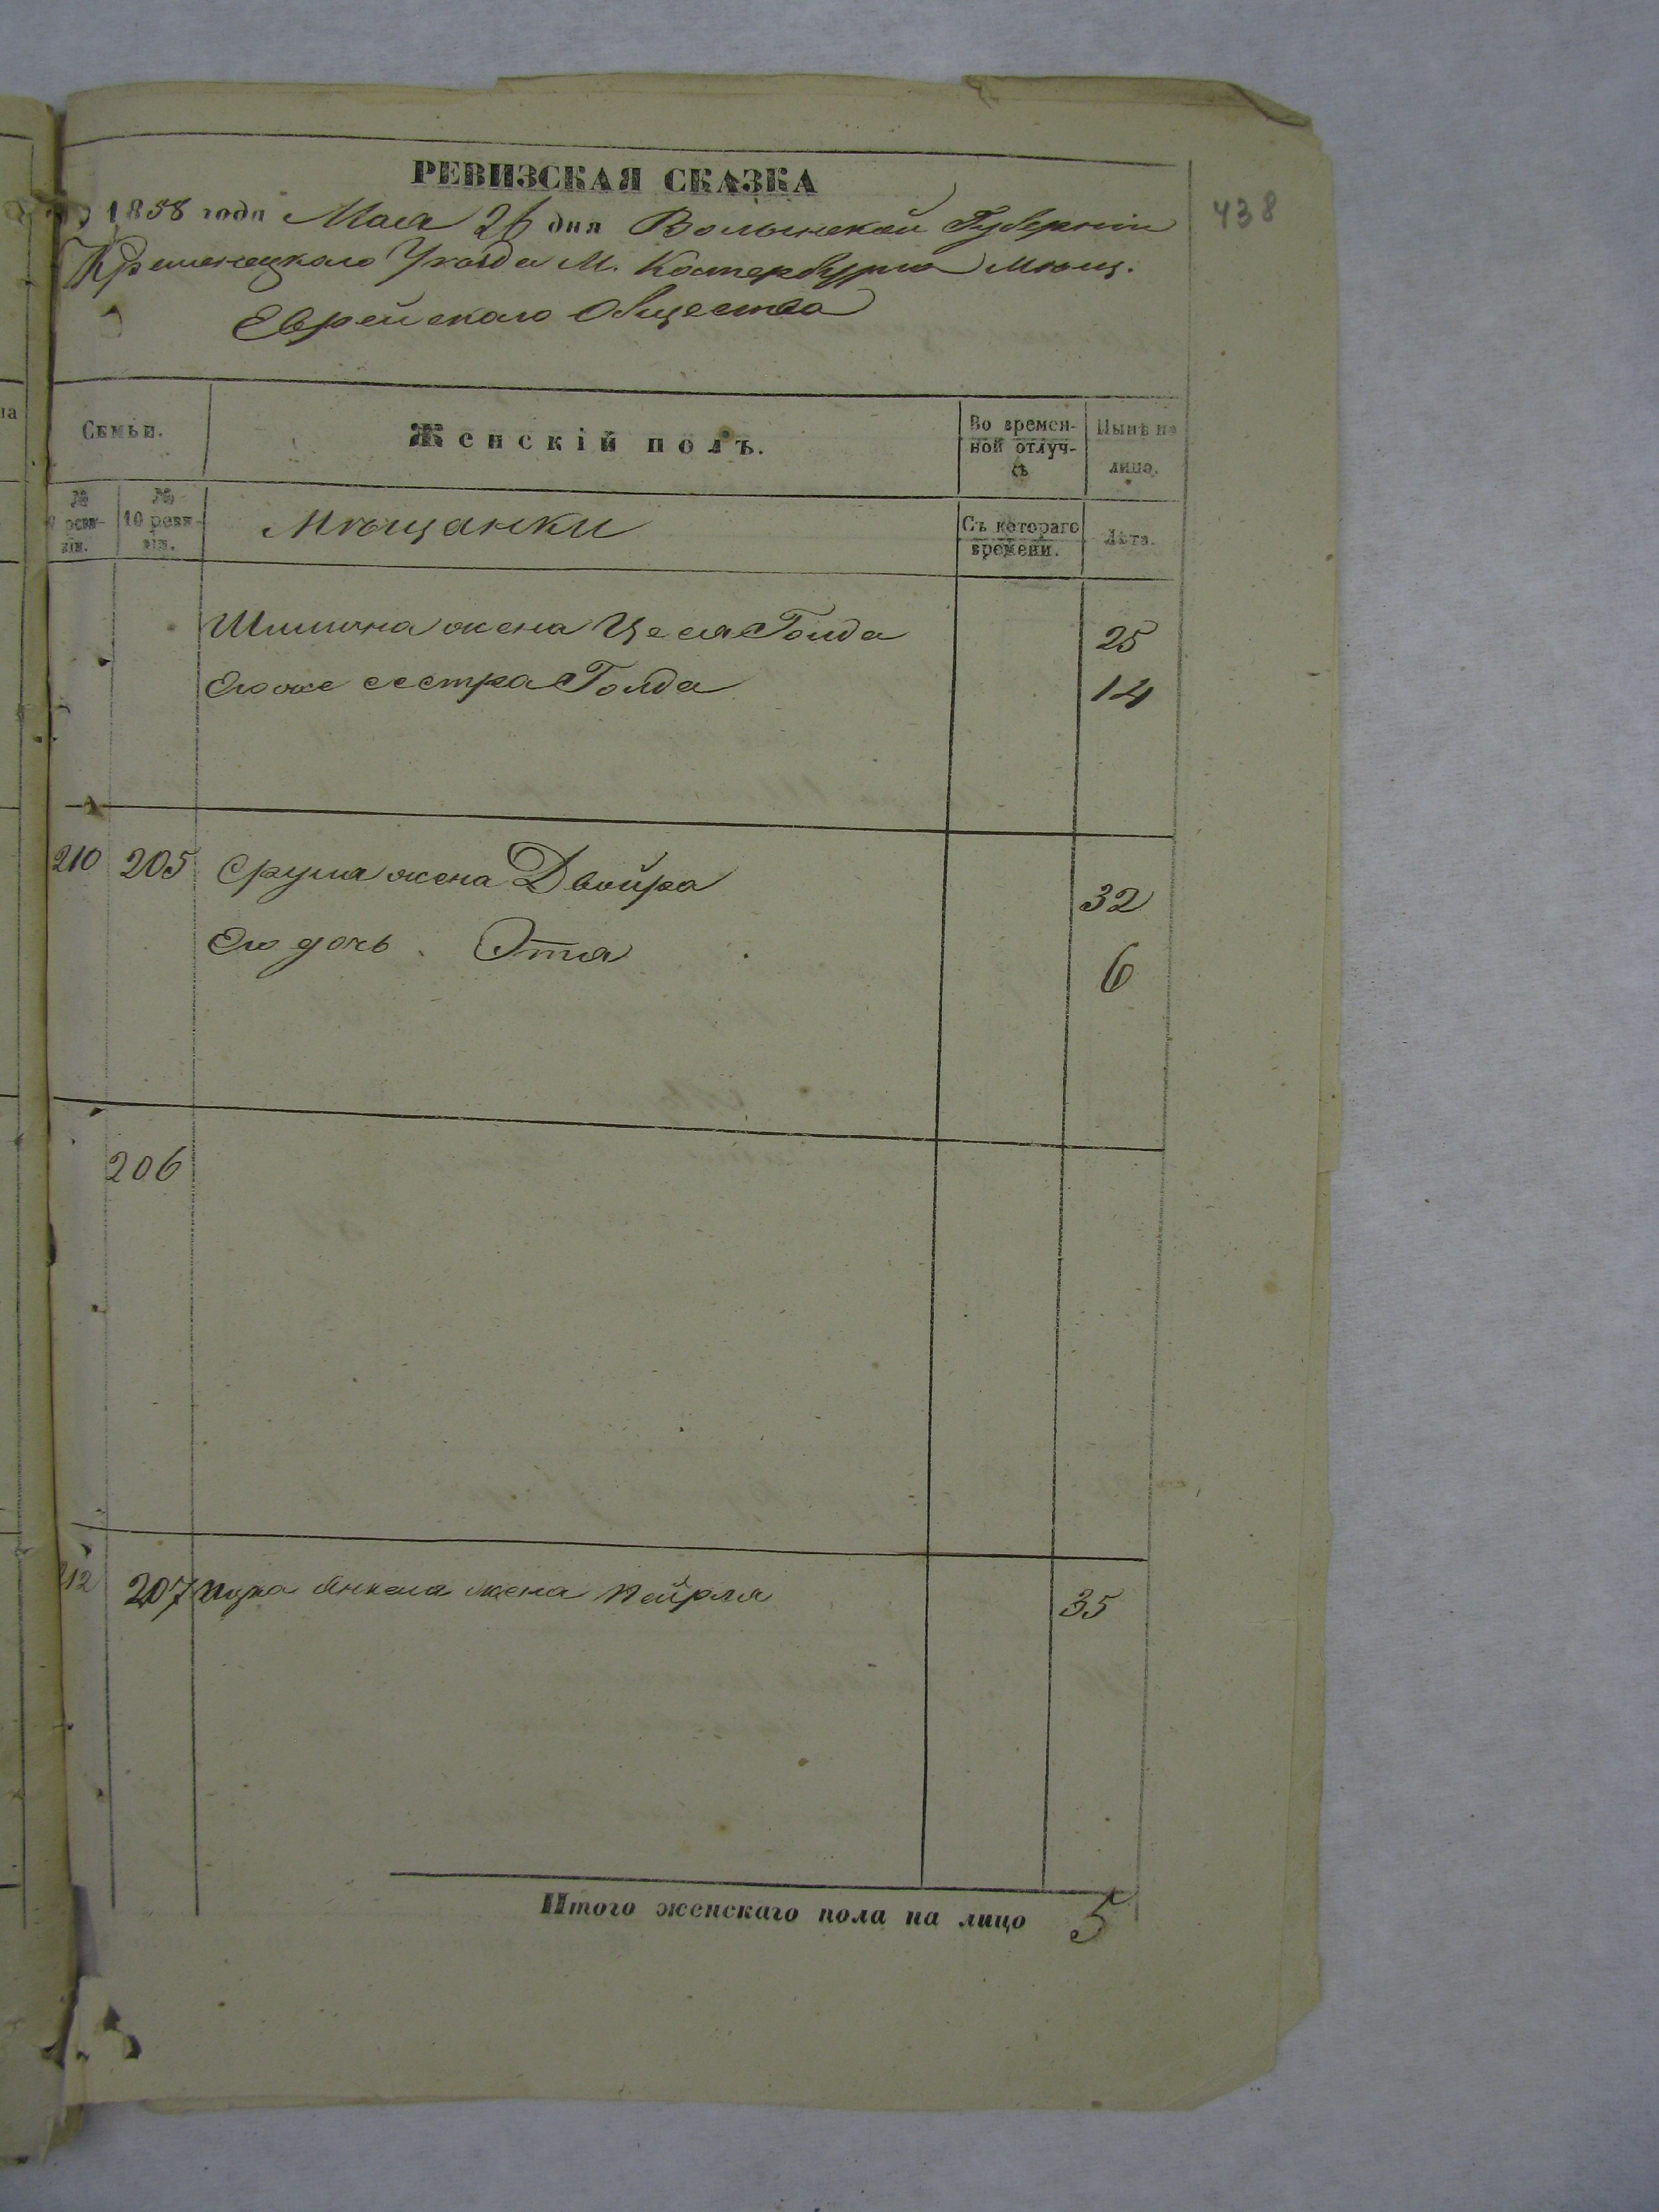 РЕВИЗСКАЯ СКАЗКА
438
1858 года Мая 26 дня Волынской Губерніи
Кременецкаго Уѣзда М. Катербурга Мѣщ.
Еврейскаго Общества
Семьи.
Женскій полъ.
Во времен-
ной отлуч-
кѣ
Нынѣ на
лицо.
№
9 реви-
зіи.
№
10 реви-
зіи.
Мѣщанки
Съ котораго
времени.
Лѣта.
жена Цеся Голда 25
Его же сестра Голда 14
210 205 Сруля жена Двойра 32
Его дочь Этя 6
206
212 207 Янкеля жена Пейрля 35
Итого женскаго пола на лицо 5